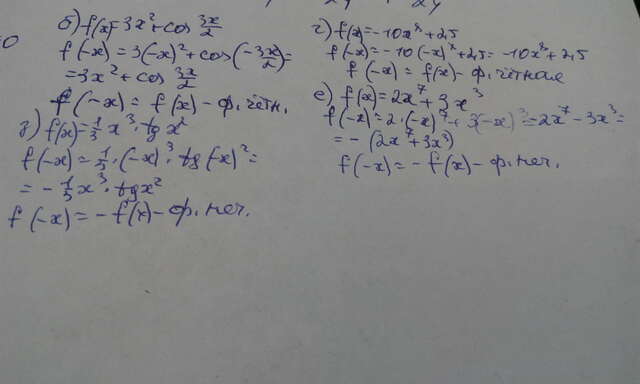 б) f(x)=3x²+cos 3x/2
f(-x)=3(-x)²+cos(-3x/2)=
=3x²+cos 3x/2
f(-x)=f(x)-ф. чётн.
з) f(x)=1/3 x³·tg x²
f(-x)=1/3·(-x)³·tg(-x)²=
=-1/3x³·tgx²
f(-x)=-f(x)-ф. неч.
г) f(x)=-10x⁸+2,5
f(-x)=-10(-x)⁸+2,5=-10x⁸+2,5
f(-x)=f(x)-ф. чётная
е) f(x)=2x⁷+3x³
f(-x)=2·(-x)⁷+3(-x)³=-2x⁷-3x³=
=-(2x⁷+3x³)
f(-x)=-f(x)-ф. неч.